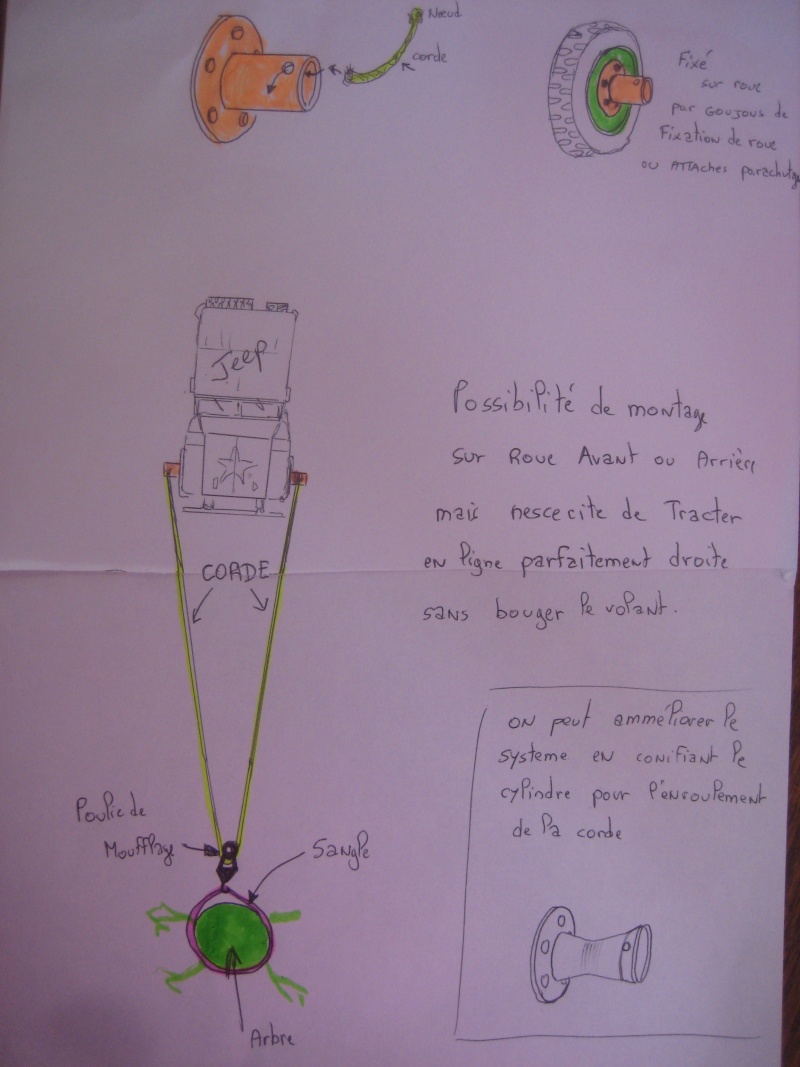 Nœud
corde
Fixé
sur roue
par Goujous de
Fixation de roue
ou ATTAches parachutage
Jeep
Possibilité de montage
sur Roue Avant ou Arrière
mais nescecite de Tracter
en ligne parfaitement droite
sans bouger le volant.
CORDE
on peut amméliorer le
systeme en conifiant le
cylindre pour l'enroulement
de la corde
Poulie de
Moufflage
Sangle
Arbre